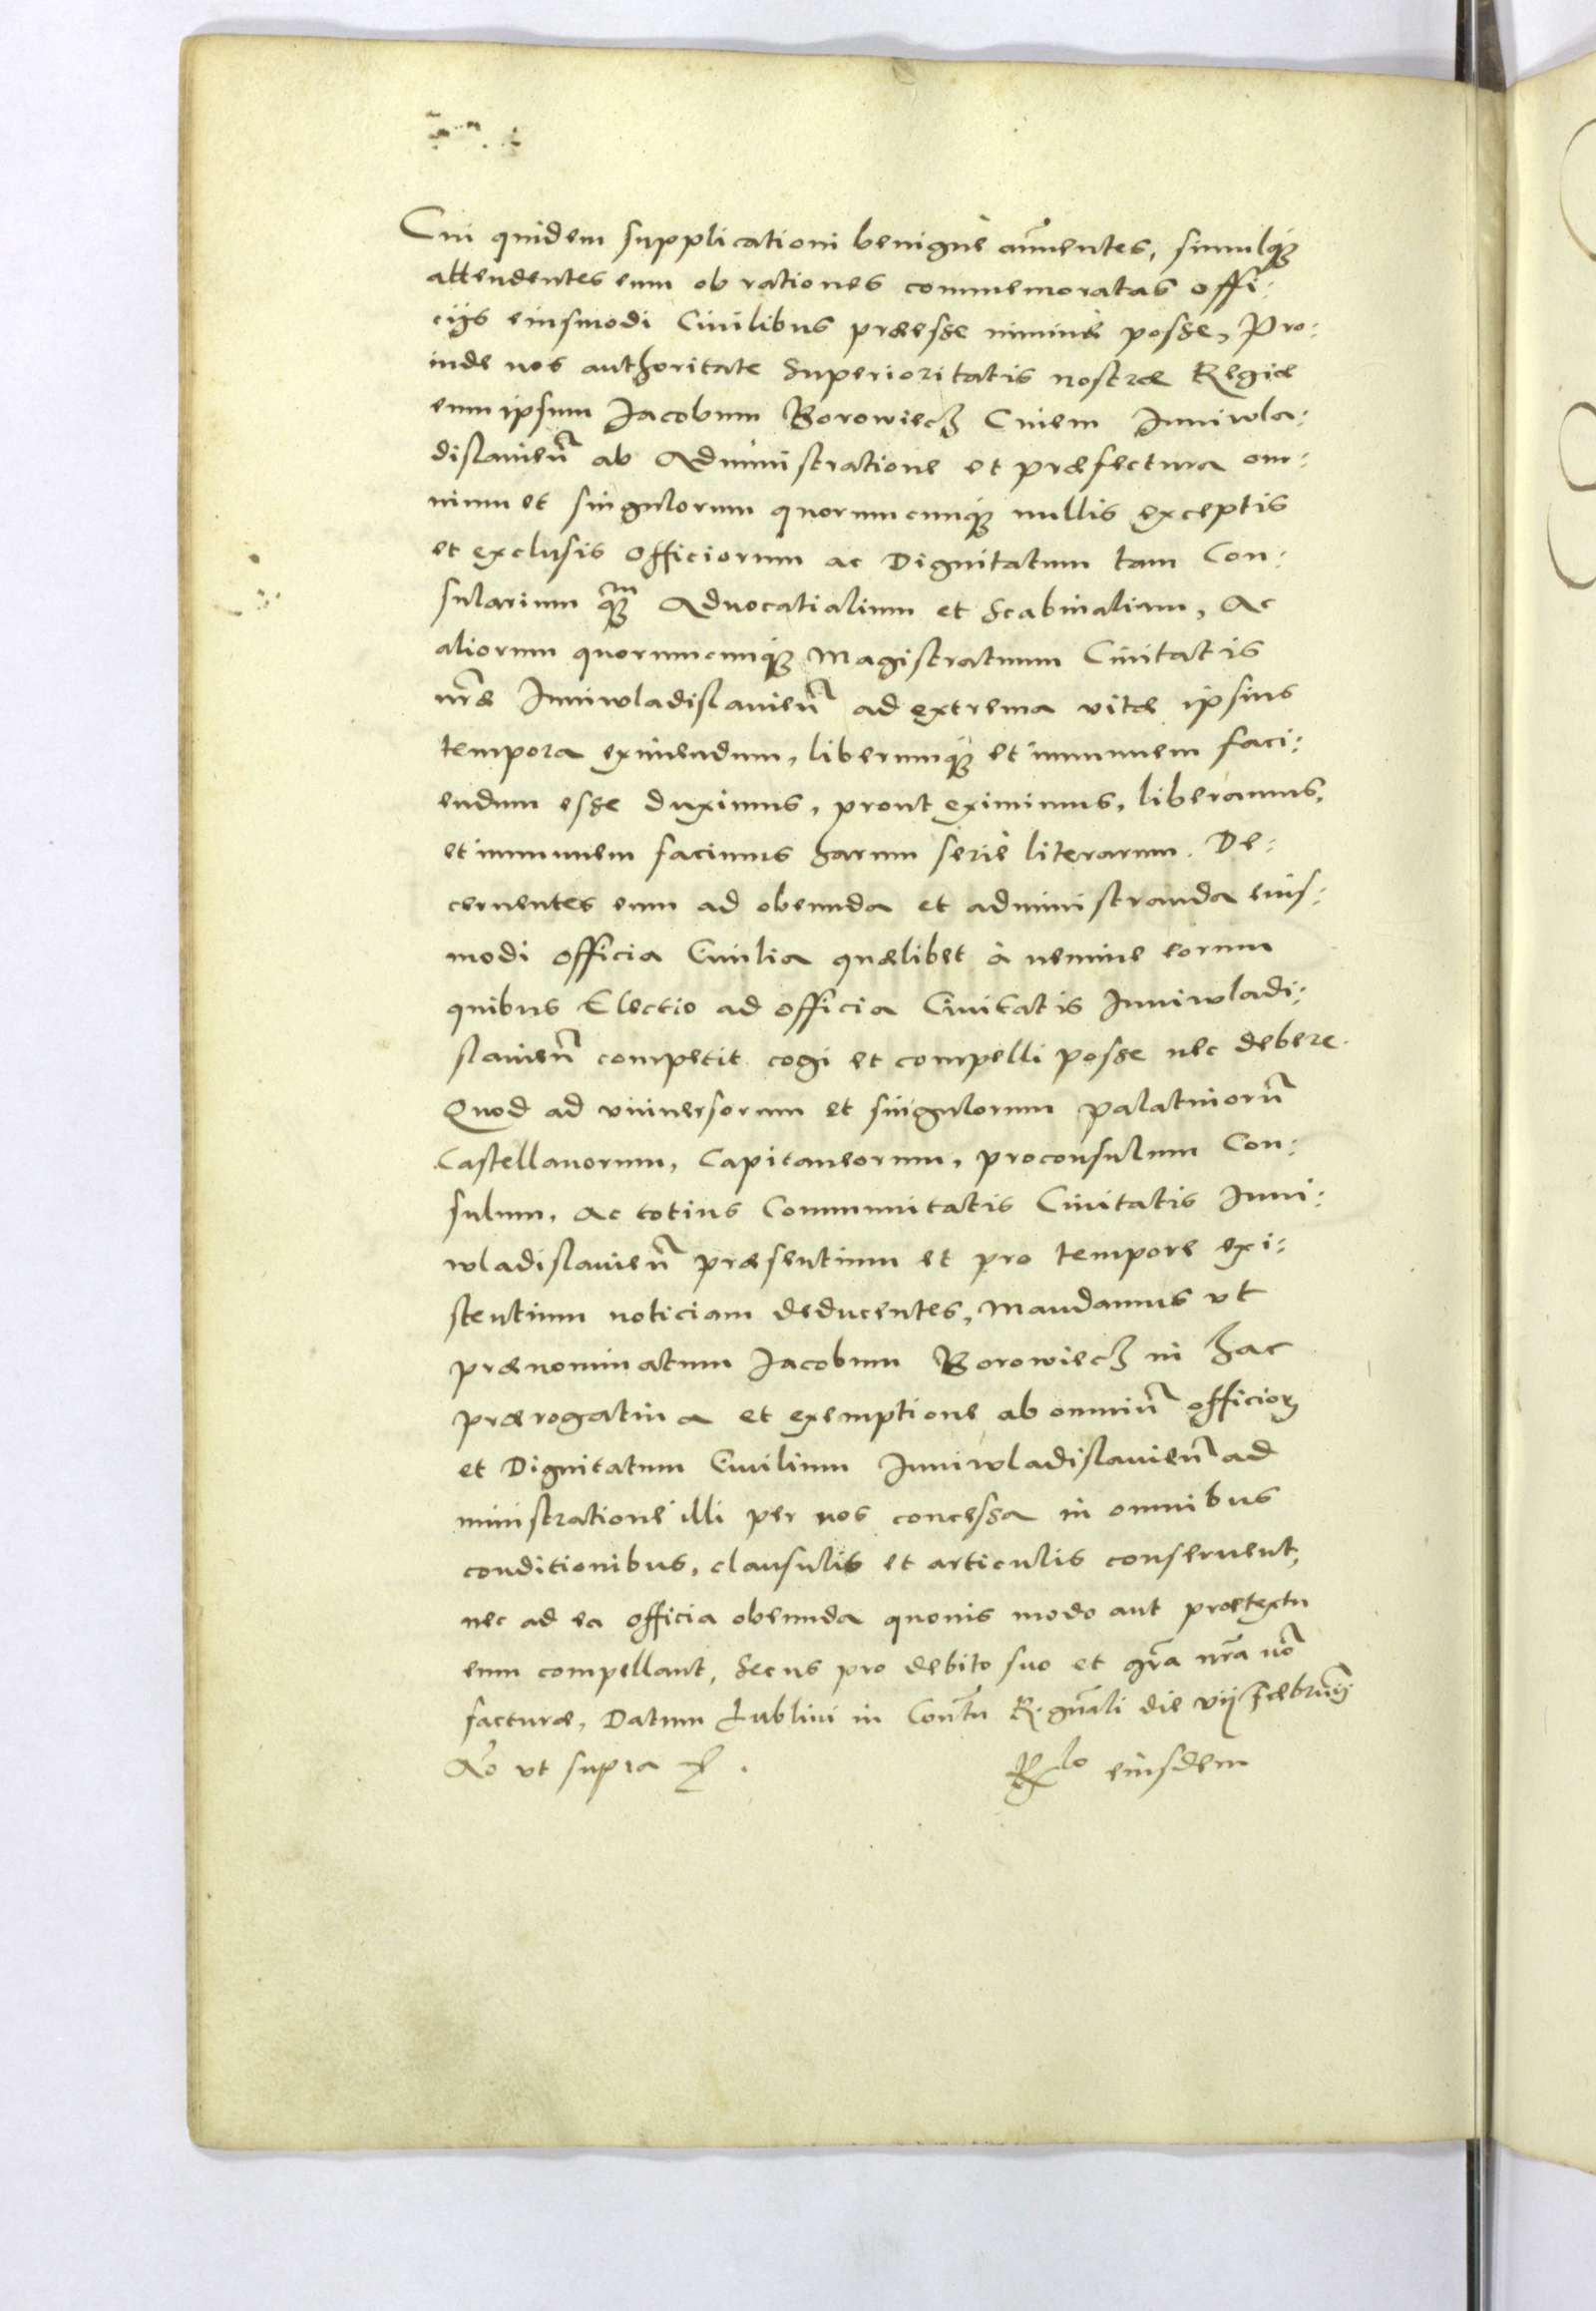 Cui quidem supplicationi benignè annuentes, simulq́ꝫ
attendentes eum ob rationes commemoratas offi:
cijs eiusmodi Ciuilibus præesse minimè posse, Pro:
inde nos authoritate Superioritatis nostræ Regiæ
eum ipsum Jacobum Borowieck Ciuem Juniwla:
dislauieñ ab Administratione et præfectura om:
nium et singulorum quorumcunq́ꝫ nullis exceptis
et exclusis Officiorum ac Dignitatum tam Con:
sularium qꝫm Aduocatialium et Scabinalium, Ac
aliorum quorumcunq́ꝫ Magistratuum Ciuitatis
nr̃æ Juniwladislauieñ ad extrema vitæ ipsius
tempora eximendum, liberumq́ꝫ et immunem faci:
endum esse duximus, prout eximimus, liberamus,
et immunem facimus harum seriè literarum. De:
cernentes eum ad obeunda et administranda eius:
modi officia Ciuilia quælibet à nemine eorum
quibus Electio ad officia Ciuitatis Juniwladi:
slauieñ competit cogi et compelli posse nec debere.
Quod ad vniuersorum et singulorum palatinorũ
Castellanorum, Capitaneorum, proconsulum Con:
sulum, Ac totius Communitatis Ciuitatis Juni:
wladislauieñ præsentium et pro tempore exi:
stentium noticiam deducentes, Mandamus vt
prænominatum Jacobum Borowieck in hac
prærogatiua et exemptione ab omniũ officioꝝ
et Dignitatum Ciuilium Juniwladislauieñ ad
ministratione illi per nos concessa in omnibus
conditionibus, clausulis et articulis conseruent,
nec ad ea officia obeunda quouis modo aut prætextu
eum compellant, Secus pro debito suo et gr̃a nr̃a nõ
facturæ, Datum Lublini in Conũtu R. gñali die vij Fæbruarij
Aõ vt supra
R lo eiusdem